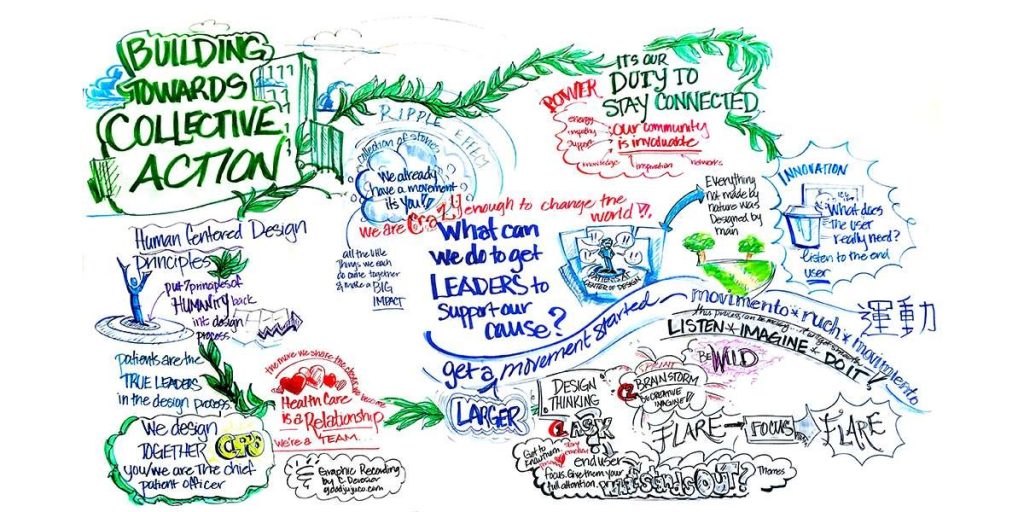 BUILDING
TOWARDS
COLLECTIVE
ACTION
RIPPLE EFFECT
collection of stories
We already
have a movement
it's you!!
we are crazy enough to change the
world!!
all the little
things we each
do come together
& make a BIG
IMPACT
IT'S OUR
DUTY TO
STAY CONNECTED
POWER
energy
empathy
support
knowledge
inspiration
networks
our community
is invaluable
Everything
not made by
nature was
Designed by
main
INNOVATION
What does
the user
really need?
listen to the end
user
Human Centered Design
principles
put 7 principles of
HUMANITY back
into design
process
What can
we do to get
LEADERS to
support our
cause?
PATIENTS AT
CENTER OF DESIGN
get a movement started
LARGER
movimento * ruch * movimiento
運動
LISTEN * IMAGINE * DO IT!
BE WILD
patients are the
TRUE LEADERS
in the design process.
We design
TOGETHER
CPO
you/we are the chief
patient officer
the more we share the closer we become
HealthCare
is a Relationship
we're a TEAM...
Graphic Recording
by C. Devosior
DESIGN
THINKING
SPRINT
BRAINSTORM
CREATIVE
IMAGINE!
ASK
Get to
know them
story
end user
focus. Give them your
full attention.
FLARE → FOCUS → FLARE
What stands OUT?
Themes